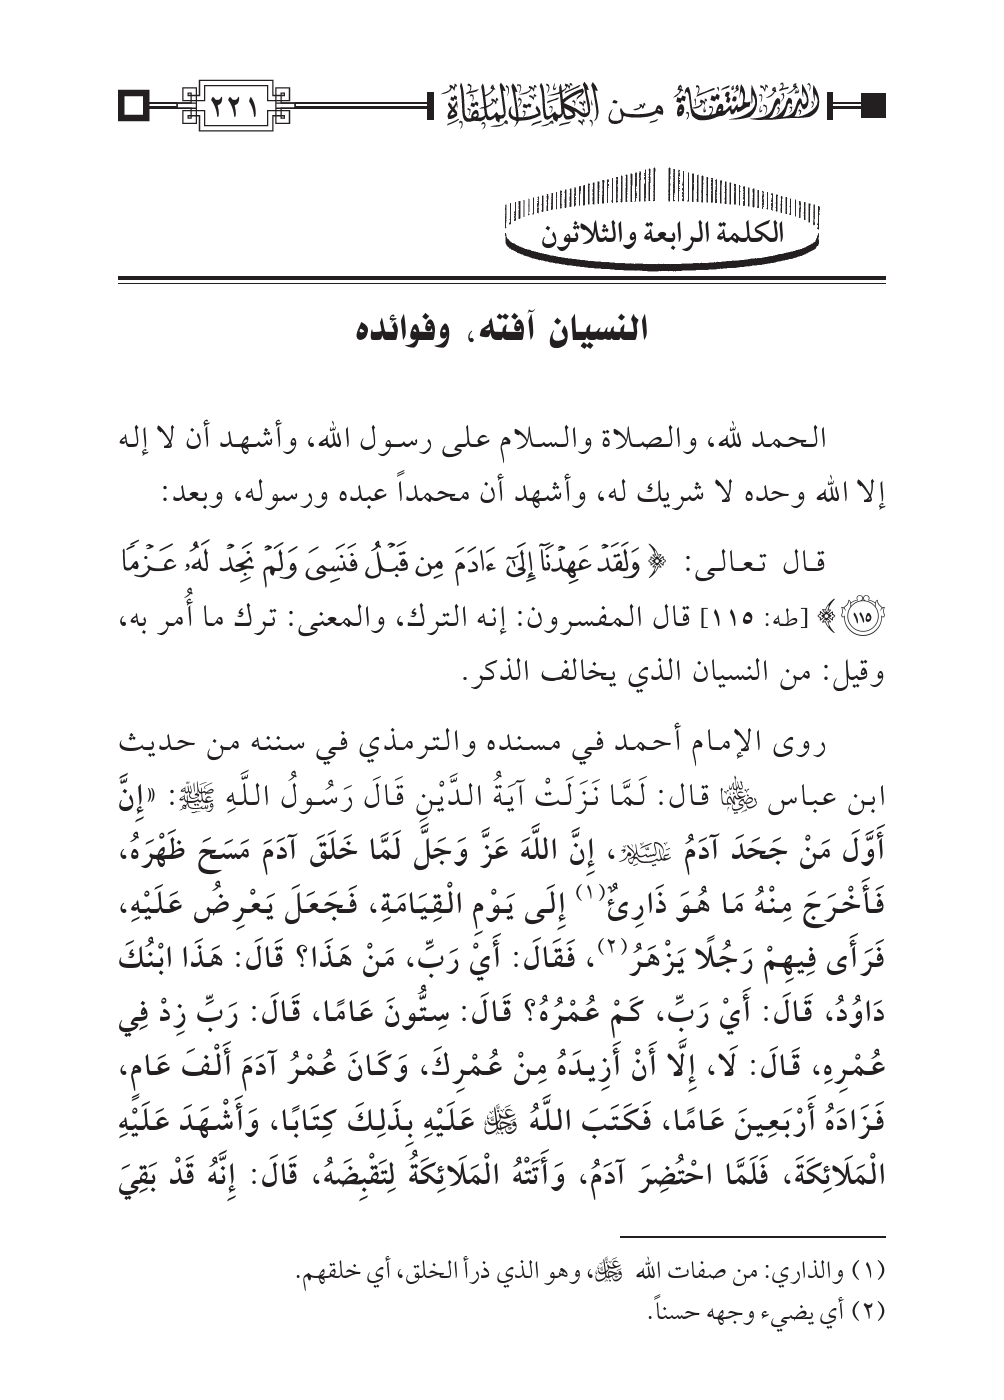 الدرر المنتقاة من الكلمات الملقاة ٢٢١
الكلمة الرابعة والثلاثون
النسيان آفته، وفوائده
الحمد لله، والصلاة والسلام على رسول الله، وأشهد أن لا إله
إلا الله وحده لا شريك له، وأشهد أن محمداً عبده ورسوله، وبعد:
قال تعالى: ﴿وَلَقَدْ عَهِدْنَآ إِلَىٰٓ ءَادَمَ مِن قَبْلُ فَنَسِىَ وَلَمْ نَجِدْ لَهُۥ عَزْمًا
﴿١١٥﴾ [طه: ١١٥] قال المفسرون: إنه الترك، والمعنى: ترك ما أُمر به،
وقيل: من النسيان الذي يخالف الذكر.
روى الإمام أحمد في مسنده والترمذي في سننه من حديث
ابن عباس رضي الله عنهما قال: لَمَّا نَزَلَتْ آيَةُ الدَّيْنِ قَالَ رَسُولُ اللَّهِ ﷺ: «إِنَّ
أَوَّلَ مَنْ جَحَدَ آدَمُ عليه السلام، إِنَّ اللَّهَ عَزَّ وَجَلَّ لَمَّا خَلَقَ آدَمَ مَسَحَ ظَهْرَهُ،
فَأَخْرَجَ مِنْهُ مَا هُوَ ذَارِئٌ(١) إِلَى يَوْمِ الْقِيَامَةِ، فَجَعَلَ يَعْرِضُ عَلَيْهِ،
فَرَأَى فِيهِمْ رَجُلًا يَزْهَرُ(٢)، فَقَالَ: أَيْ رَبِّ، مَنْ هَذَا؟ قَالَ: هَذَا ابْنُكَ
دَاوُدُ، قَالَ: أَيْ رَبِّ، كَمْ عُمْرُهُ؟ قَالَ: سِتُّونَ عَامًا، قَالَ: رَبِّ زِدْ فِي
عُمْرِهِ، قَالَ: لَا، إِلَّا أَنْ أَزِيدَهُ مِنْ عُمْرِكَ، وَكَانَ عُمْرُ آدَمَ أَلْفَ عَامٍ،
فَزَادَهُ أَرْبَعِينَ عَامًا، فَكَتَبَ اللَّهُ عز وجل عَلَيْهِ بِذَلِكَ كِتَابًا، وَأَشْهَدَ عَلَيْهِ
الْمَلَائِكَةَ، فَلَمَّا احْتُضِرَ آدَمُ، وَأَتَتْهُ الْمَلَائِكَةُ لِتَقْبِضَهُ، قَالَ: إِنَّهُ قَدْ بَقِيَ
(١) والذاري: من صفات الله عز وجل، وهو الذي ذرأ الخلق، أي خلقهم.
(٢) أي يضيء وجهه حسناً.